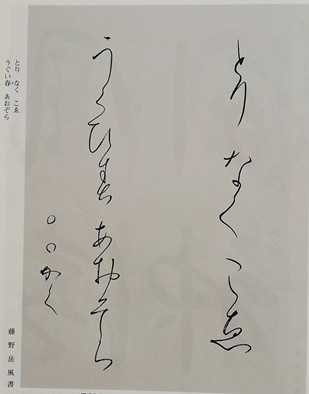 とり なく こゑ
うくひ春 あおそら
○○かく
とり なく こゑ
うぐい春 あおぞら
藤野岳風書